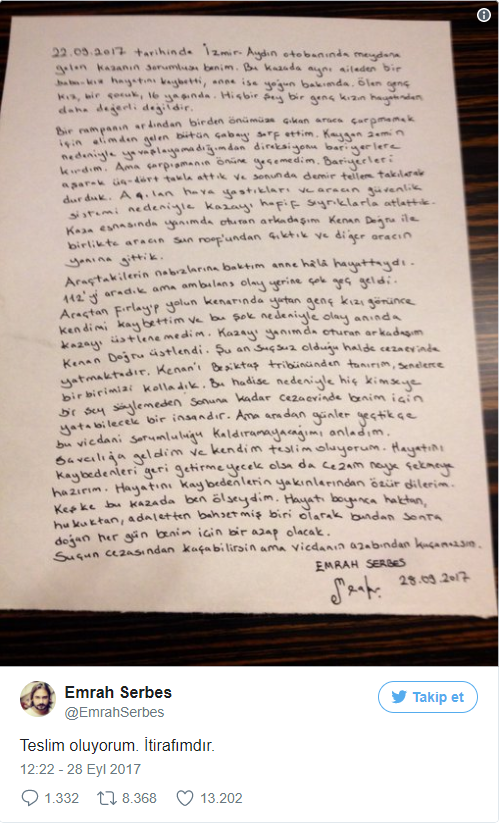 22.09.2017 tarihinde İzmir-Aydın otobanında meydana
gelen kazanın sorumlusu benim. Bu kazada aynı aileden bir
baba-kız hayatını kaybetti, anne ise yoğun bakımda. Ölen genç
kız, bir çocuk, 16 yaşında. Hiçbir şey bir genç kızın hayatından
daha değerli değildir.
Bir rampanın ardından birden önümüze çıkan araca çarpmamak
için elimden gelen bütün çabayı sarf ettim. Kaygan zemin
nedeniyle yavaşlayamadığımdan direksiyonu bariyerlere
kırdım. Ama çarpışmanın önüne geçemedim. Bariyerleri
aşarak üç-dört takla attık ve sonunda demir tellere takılarak
durduk. Açılan hava yastıkları ve aracın güvenlik
sistemi nedeniyle kazayı hafif sıyrıklarla atlattık.
Kaza esnasında yanımda oturan arkadaşım Kenan Doğru ile
birlikte aracın sun roof'undan çıktık ve diğer aracın
yanına gittik.
Araçtakilerin nabızlarına baktım anne hâlâ hayattaydı.
112'yi aradık ama ambulans olay yerine çok geç geldi.
Araçtan fırlayıp yolun kenarında yatan genç kızı görünce
kendimi kaybettim ve bu şok nedeniyle olay anında
kazayı üstlenemedim. Kazayı yanımda oturan arkadaşım
Kenan Doğru üstlendi. Şu an suçsuz olduğu halde cezaevinde
yatmaktadır. Kenan'ı Beşiktaş tribününden tanırım, senelerce
birbirimizi kolladık. Bu hadise nedeniyle hiç kimseye
bir şey söylemeden sonuna kadar cezaevinde benim için
yatabilecek bir insandır. Ama aradan günler geçtikçe
bu vicdani sorumluluğu kaldıramayacağımı anladım.
Savcılığa geldim ve kendim teslim oluyorum. Hayatını
kaybedenleri geri getirmeyecek olsa da cezam neyse çekmeye
hazırım. Hayatını kaybedenlerin yakınlarından özür dilerim.
Keşke bu kazada ben ölseydim. Hayatı boyunca haktan,
hukuktan, adaletten bahsetmiş biri olarak bundan sonra
doğan her gün benim için bir azap olacak.
Suçun cezasından kaçabilirsin ama vicdanın azabından kaçamazsın.
EMRAH SERBES
28.09.2017
Emrah Serbes
@EmrahSerbes
Takip et
Teslim oluyorum. İtirafımdır.
12:22 - 28 Eyl 2017
1.332 8.368 13.202